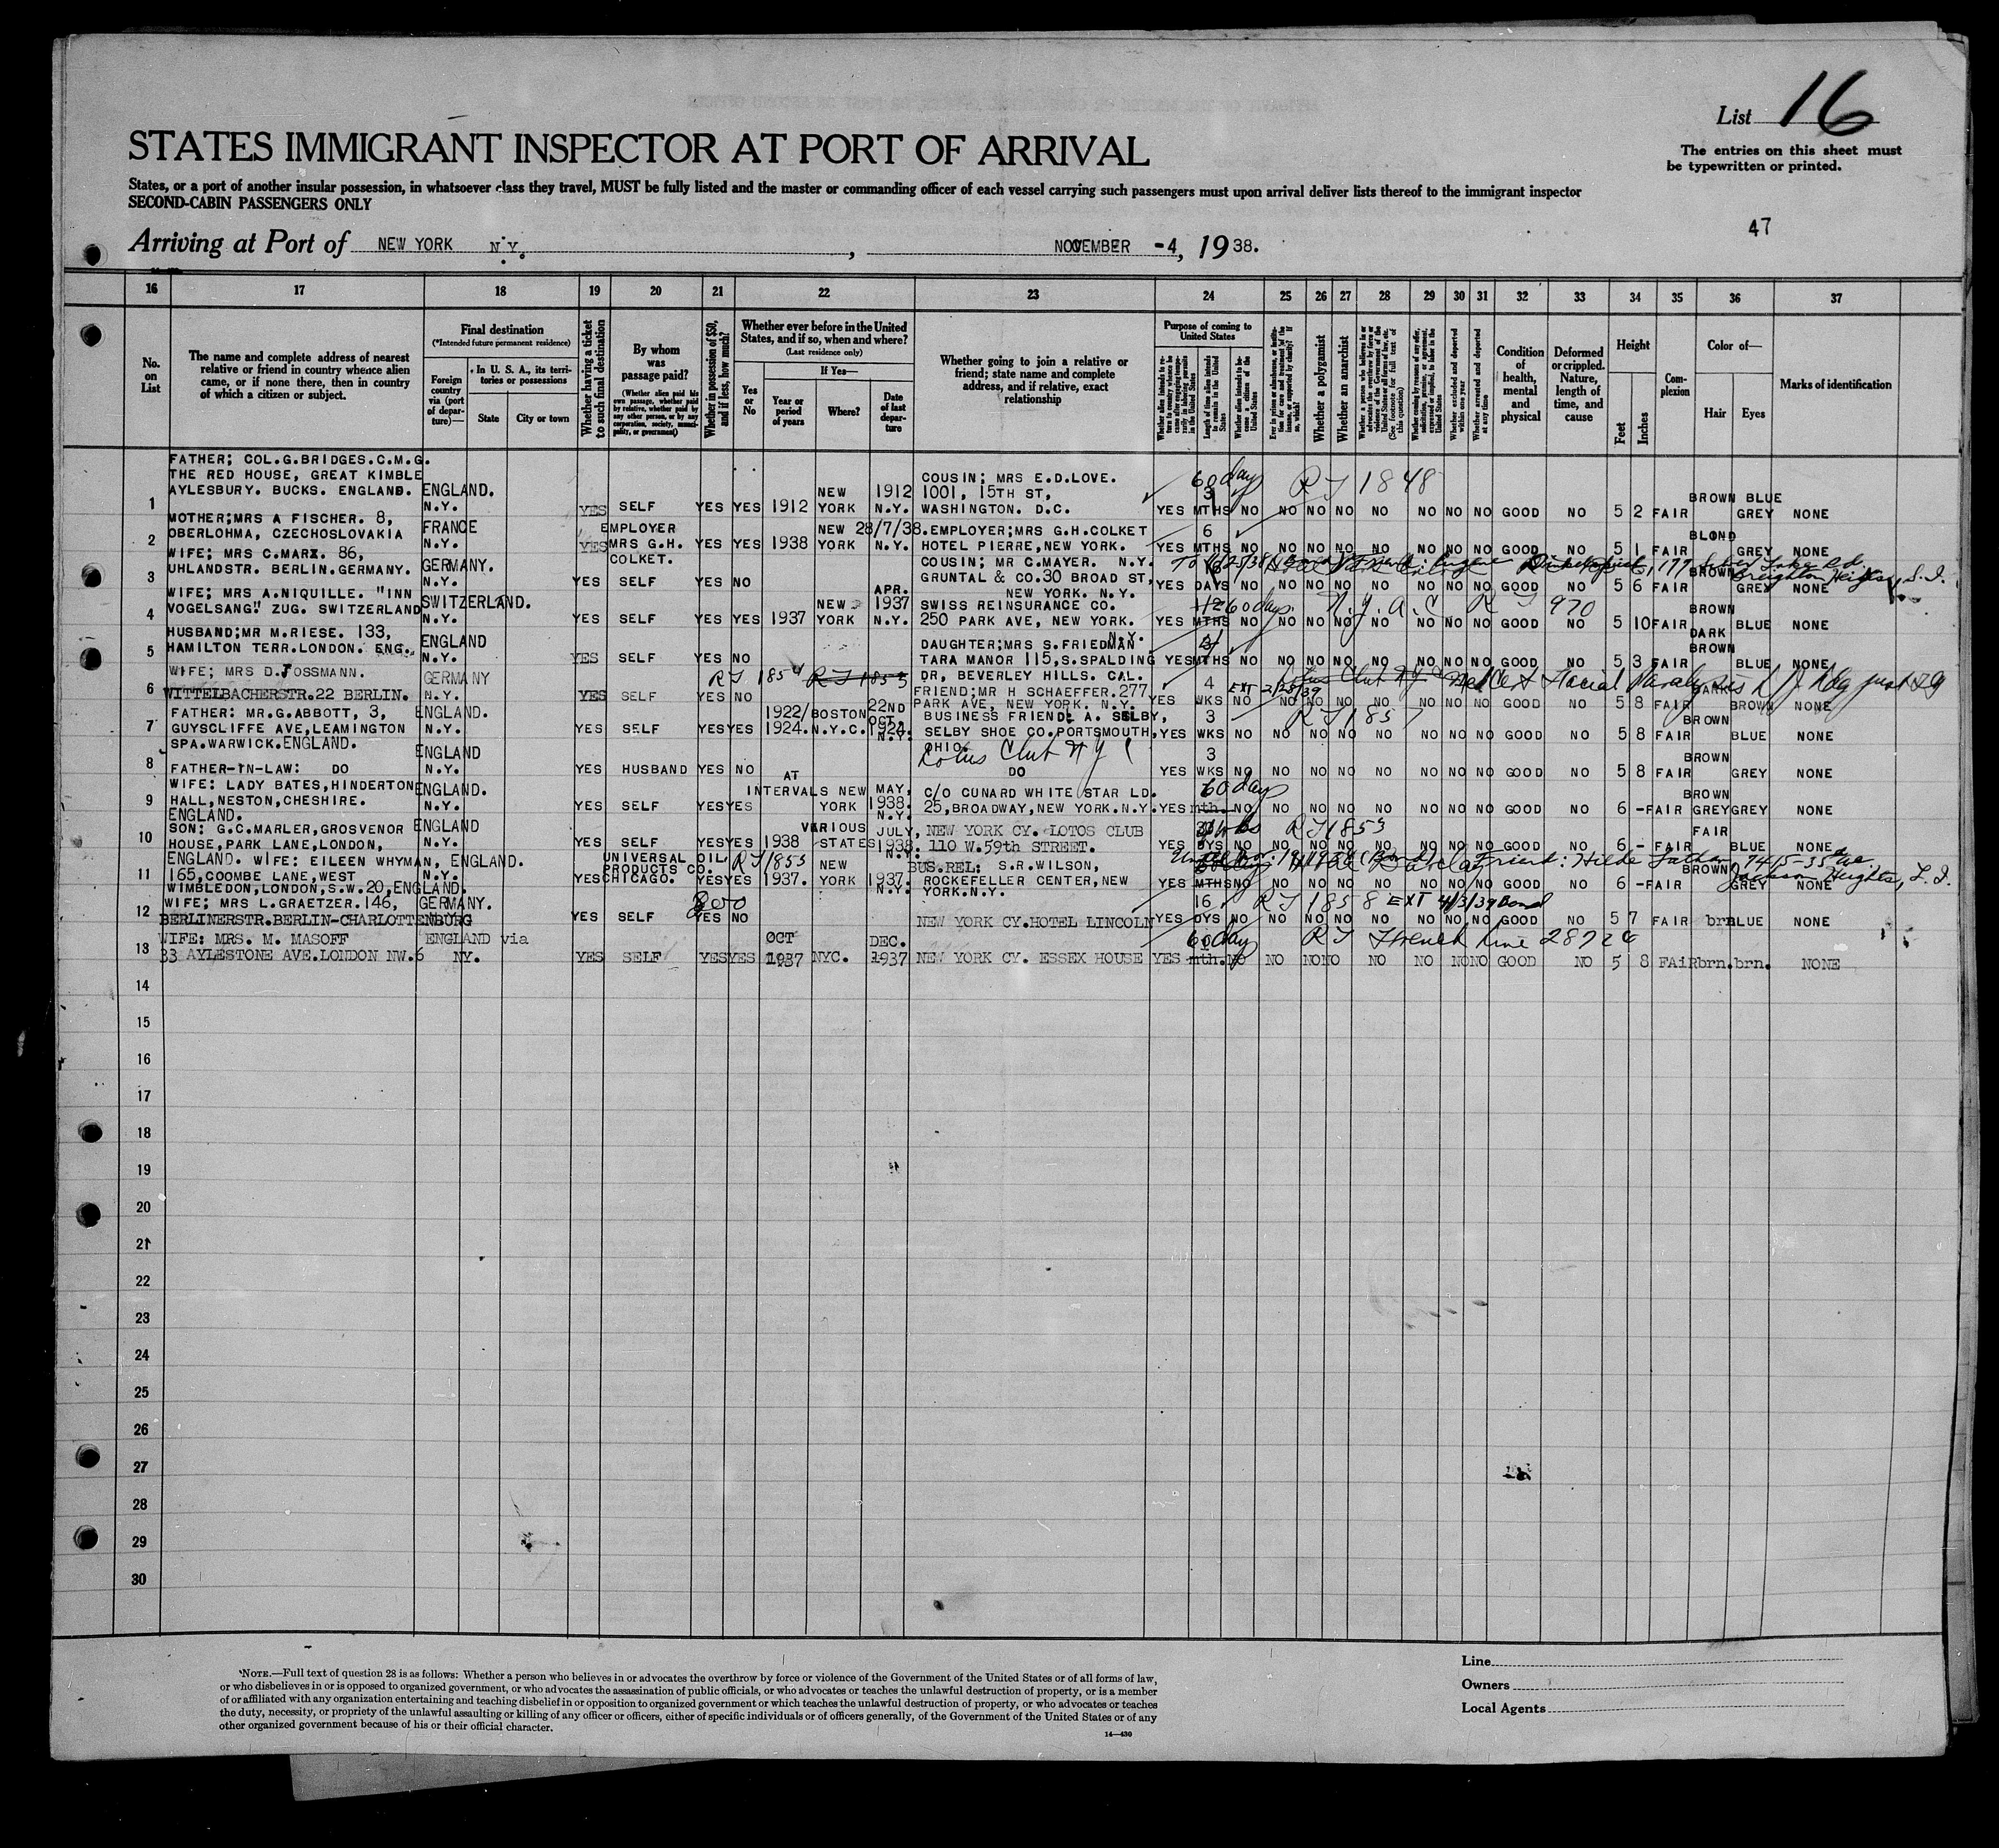 List 16
The entries on this sheet must
be typewritten or printed.
STATES IMMIGRANT INSPECTOR AT PORT OF ARRIVAL
States, or a port of another insular possession, in whatsoever class they travel, MUST be fully listed and the master or commanding officer of each vessel carrying such passengers must upon arrival deliver lists thereof to the immigrant inspector
SECOND-CABIN PASSENGERS ONLY
47
Arriving at Port of NEW YORK N.Y. , NOVEMBER -4, 1938.
16 17 18 19 20 21 22 23 24 25 26 27 28 29 30 31 32 33 34 35 36 37
No. on List
The name and complete address of nearest
relative or friend in country whence alien
came, or if none there, then in country
of which a citizen or subject.
Final destination
(*Intended future permanent residence)
Foreign country via (port of departure)—
In U. S. A., its territories or possessions
State
City or town
Whether having a ticket to such final destination
By whom was passage paid?
(Whether alien paid his own passage, whether paid by relative, whether paid by any other person, or by any corporation, society, municipality, or government)
Whether in possession of $50, and if less, how much?
Whether ever before in the United States, and if so, when and where?
(Last residence only)
Yes or No
If Yes—
Year or period of years
Where?
Date of last departure
Whether going to join a relative or
friend; state name and complete
address, and if relative, exact
relationship
Purpose of coming to United States
Length of time alien intends to remain in the United States
Whether alien intends to become a citizen of the United States
Whether a polygamist
Whether an anarchist
(See footnote for full text of this question)
Whether excluded and deported within one year
Whether arrested and deported at any time
Condition of health, mental and physical
Deformed or crippled. Nature, length of time, and cause
Height
Feet
Inches
Complexion
Color of—
Hair
Eyes
Marks of identification
1 FATHER; COL.G.BRIDGES.C.M.G.
THE RED HOUSE, GREAT KIMBLE
AYLESBURY. BUCKS. ENGLAND. ENGLAND. N.Y. YES SELF YES YES 1912 NEW YORK 1912 N.Y. COUSIN; MRS E.D.LOVE. 1001, 15TH ST, WASHINGTON. D.C. YES 3 MTHS 60 days NO RJ 1848 NO NO NO NO NO NO NO GOOD NO 5 2 FAIR BROWN BLUE GREY NONE
2 MOTHER;MRS A FISCHER. 8,
OBERLOHMA, CZECHOSLOVAKIA FRANCE N.Y. YES EMPLOYER MRS G.H. COLKET. YES YES 1938 NEW YORK 28/7/38. N.Y. EMPLOYER;MRS G.H.COLKET HOTEL PIERRE,NEW YORK. YES 6 MTHS NO NO NO NO NO NO NO NO GOOD NO 5 1 FAIR BLOND GREY NONE
3 WIFE; MRS C.MARX. 86,
UHLANDSTR. BERLIN.GERMANY. GERMANY. N.Y. YES SELF YES NO COUSIN; MR C.MAYER. N.Y. GRUNTAL & CO.30 BROAD ST, NEW YORK. N.Y. YES DAYS NO NO NO NO NO NO NO NO GOOD NO 5 6 FAIR BROWN GREY NONE
4 WIFE; MRS A.NIQUILLE. "INN
VOGELSANG" ZUG. SWITZERLAND SWITZERLAND. N.Y. YES SELF YES YES 1937 NEW YORK APR. 1937 N.Y. SWISS REINSURANCE CO. 250 PARK AVE, NEW YORK. N.Y. YES 60 days MTHS NO N.Y.A.C RJ 970 NO NO NO NO NO NO NO GOOD NO 5 10 FAIR BROWN BLUE NONE
5 HUSBAND;MR M.RIESE. 133,
HAMILTON TERR.LONDON. ENG. ENGLAND N.Y. YES SELF YES NO DAUGHTER;MRS S.FRIEDMAN TARA MANOR 115,S.SPALDING DR, BEVERLEY HILLS. CAL. YES MTHS NO NO NO NO NO NO NO NO GOOD NO 5 3 FAIR DARK BROWN BLUE NONE
6 WIFE; MRS D.JOSSMANN.
WITTELBACHERSTR.22 BERLIN. GERMANY N.Y. YES SELF YES NO RJ 1854 RJ 1853 FRIEND;MR H SCHAEFFER.277 PARK AVE, NEW YORK. N.Y. YES 4 WKS NO EXT 2/28/39 NO NO NO NO NO NO NO GOOD NO 5 8 FAIR DARK BROWN NONE
7 FATHER: MR.G.ABBOTT, 3,
GUYSCLIFFE AVE,LEAMINGTON
SPA.WARWICK.ENGLAND. ENGLAND. N.Y. YES SELF YES YES 1922/1924. BOSTON N.Y.C. 22ND OCT. 1924. N.Y. BUSINESS FRIEND: A. SELBY, SELBY SHOE CO.PORTSMOUTH, OHIO. YES 3 WKS NO RJ 1857 NO NO NO NO NO NO NO GOOD NO 5 8 FAIR BROWN BLUE NONE
8 FATHER-IN-LAW: DO ENGLAND N.Y. YES HUSBAND YES NO Lotus Club N Y C DO YES 3 WKS NO NO NO NO NO NO NO NO GOOD NO 5 8 FAIR BROWN GREY NONE
9 WIFE: LADY BATES, HINDERTON
HALL, NESTON, CHESHIRE.
ENGLAND. ENGLAND. N.Y. YES SELF YES YES AT INTERVALS NEW YORK MAY, 1938. N.Y. C/O CUNARD WHITE STAR LD. 25,BROADWAY,NEW YORK.N.Y. YES mth. 60 days NO NO NO NO NO NO NO NO GOOD NO 6 - FAIR BROWN GREY GREY NONE
10 SON: G.C.MARLER,GROSVENOR
HOUSE,PARK LANE,LONDON,
ENGLAND. ENGLAND N.Y. YES SELF YES YES 1938 VARIOUS STATES JULY, 1938. N.Y. NEW YORK CY. LOTOS CLUB 110 W.59th STREET. YES DYS NO RJ 1853 NO NO NO NO NO NO NO GOOD NO 6 - FAIR FAIR BLUE NONE
11 WIFE: EILEEN WHYMAN,
165,COOMBE LANE,WEST
WIMBLEDON,LONDON,S.W.20,ENGLAND. ENGLAND. N.Y. YES UNIVERSAL OIL PRODUCTS CO. CHICAGO. YES YES RJ 1853 1937. NEW YORK 1937. N.Y. BUS.REL: S.R.WILSON, ROCKEFELLER CENTER,NEW YORK.N.Y. YES MTHS NO NO NO NO NO NO NO NO GOOD NO 6 - FAIR BROWN GREY NONE
Friend: Hilde 7415-35th Ave. Jackson Heights, L.I.
12 WIFE; MRS L.GRAETZER.146,
BERLINERSTR.BERLIN-CHARLOTTENBURG GERMANY. YES SELF 800 YES NO NEW YORK CY.HOTEL LINCOLN YES 16 DYS NO RJ 1858 EXT 4/3/39 Bond NO NO NO NO NO NO NO GOOD NO 5 7 FAIR brn BLUE NONE
13 WIFE: MRS. M. MASOFF
33 AYLESTONE AVE.LONDON NW.6 ENGLAND via NY. YES SELF YES YES OCT 1937 NYC. DEC. 1937 NEW YORK CY. ESSEX HOUSE YES mth. 60 days NO RJ French Line NO NO NO NO NO NO NO GOOD NO 5 8 FAiR brn. brn. NONE
14
15
16
17
18
19
20
21
22
23
24
25
26
27
28
29
30
*NOTE.—Full text of question 28 is as follows: Whether a person who believes in or advocates the overthrow by force or violence of the Government of the United States or of all forms of law,
or who disbelieves in or is opposed to organized government, or who advocates the assassination of public officials, or who advocates or teaches the unlawful destruction of property, or is a member
of or affiliated with any organization entertaining and teaching disbelief in or opposition to organized government or which teaches the unlawful destruction of property, or who advocates or teaches
the duty, necessity, or propriety of the unlawful assaulting or killing of any officer or officers, either of specific individuals or of officers generally, of the Government of the United States or of any
other organized government because of his or their official character.
14—430
Line
Owners
Local Agents